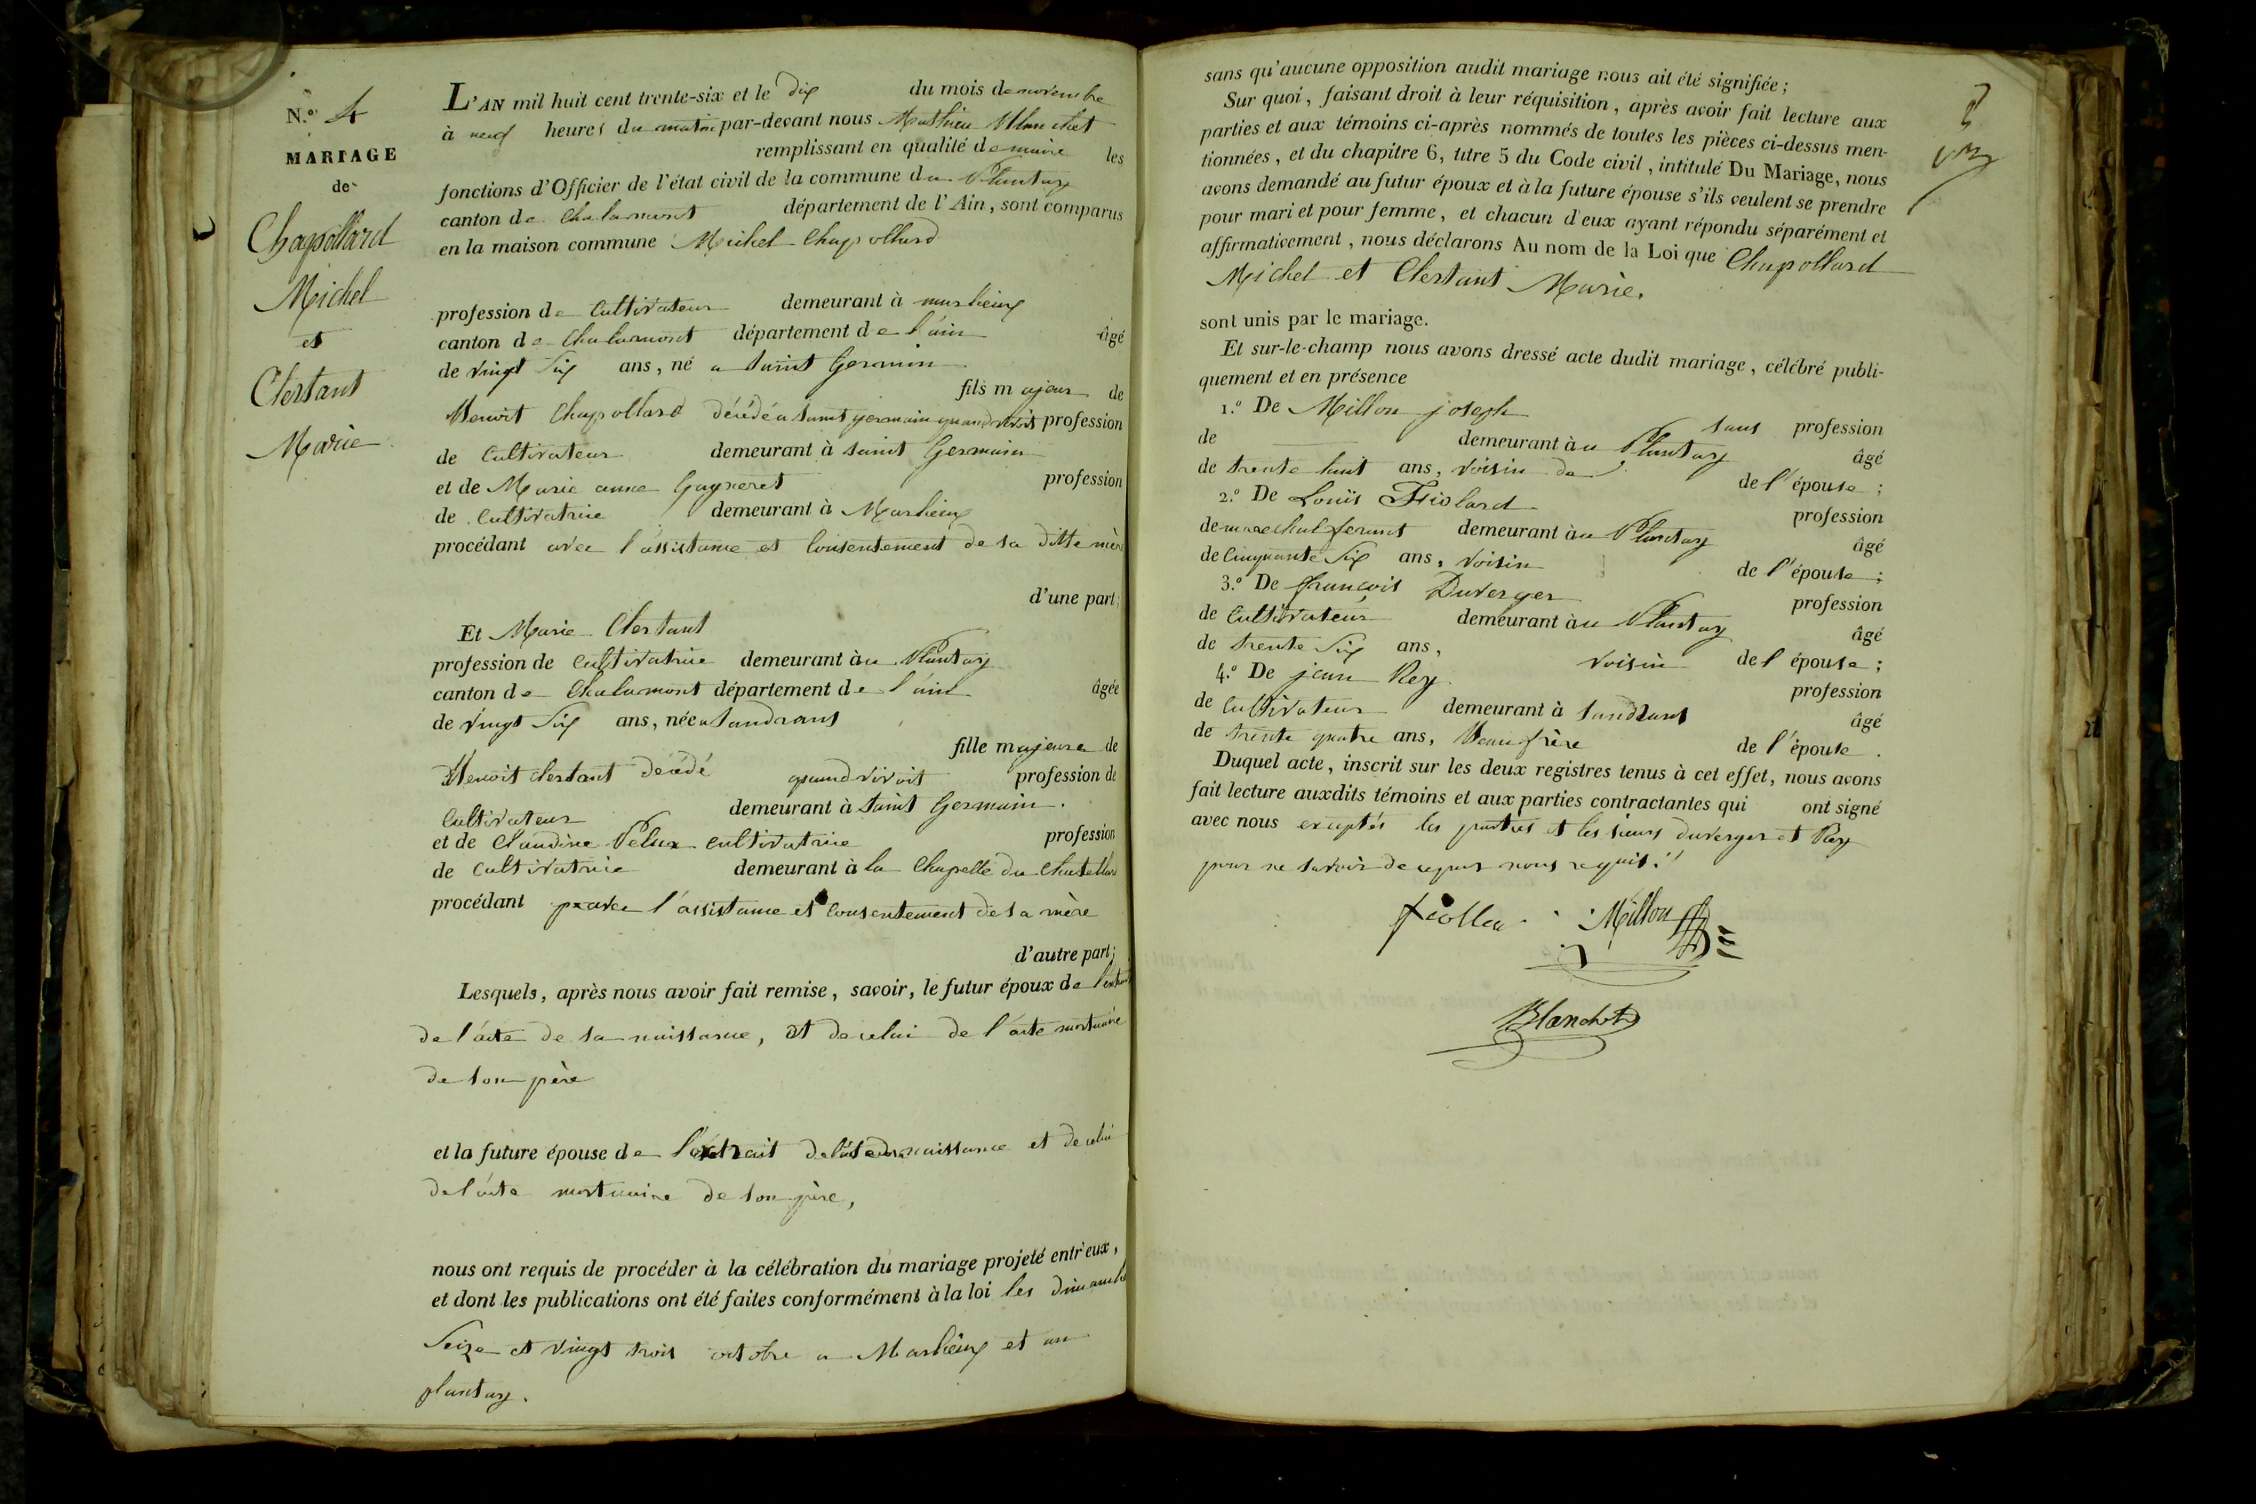 N.º 4
MARIAGE
de
Chapollard
Michel
et
Clertant
Marie
L'AN mil huit cent trente-six et le dix du mois de novembre
à neuf heures du matin par-devant nous Mathieu Blanchet
remplissant en qualité de maire les
fonctions d'Officier de l'état civil de la commune du Plantay
canton de Chalamont département de l'Ain, sont comparus
en la maison commune Michel Chapollard
profession de Cultivateur demeurant à marlieux
canton de Chalamont département de l'ain âgé
de vingt Six ans, né a Saint Germain
fils majeur de
Benoit Chapollard décédé a Saint germain quand vivoit profession
de Cultivateur demeurant à Saint Germain
et de Marie anne Gagneret profession
de Cultivatrice demeurant à Marlieux
procédant avec l'assistance et Consentement de sa ditte mère
d'une part;
Et Marie Clertant
profession de Cultivatrice demeurant àu Plantay
canton de Chalamont département de l'ain âgée
de vingt Six ans, née a Sandrans
fille majeure de
Benoit Clertant décédé quand vivoit profession de
Cultivateur demeurant à Saint Germain.
et de Claudine Pelux Cultivatrice profession
de Cultivatrice demeurant à la Chapelle du Chatellard
procédant avec l'assistance et Consentement de sa mère
d'autre part;
Lesquels, après nous avoir fait remise, savoir, le futur époux de l'extrait
de l'acte de sa naissance, et de celui de l'acte mortuaire
de son père
et la future épouse de l'extrait de l'acte de sa naissance et de celui
de l'acte mortuaire de son père,
nous ont requis de procéder à la célébration du mariage projeté entr'eux,
et dont les publications ont été faites conformément à la loi les dimanche
Seize et vingt trois octobre a Marlieux et au
plantay.
sans qu'aucune opposition audit mariage nous ait été signifiée;
Sur quoi, faisant droit à leur réquisition, après avoir fait lecture aux
parties et aux témoins ci-après nommés de toutes les pièces ci-dessus men-
tionnées, et du chapitre 6, titre 5 du Code civil, intitulé Du Mariage, nous
avons demandé au futur époux et à la future épouse s'ils veulent se prendre
pour mari et pour femme, et chacun d'eux ayant répondu séparément et
affirmativement, nous déclarons Au nom de la Loi que Chapollard
Michel et Clertant Marie.
sont unis par le mariage.
Et sur-le-champ nous avons dressé acte dudit mariage, célébré publi-
quement et en présence
1.º De Millon joseph
sans profession
de demeurant àu Plantay âgé
de trente huit ans, voisin de de l'épouse;
2.º De Louis Fiolard profession
de marechal ferrant demeurant àu Plantay âgé
de Cinquante Six ans, voisin de l'épouse;
3.º De françois Duverger profession
de Cultivateur demeurant àu Plantay âgé
de trente Six ans, voisin de l'épouse;
4.º De jean Rey profession
de Cultivateur demeurant à Sandrans âgé
de trente quatre ans, Beau frère de l'épouse.
Duquel acte, inscrit sur les deux registres tenus à cet effet, nous avons
fait lecture auxdits témoins et aux parties contractantes qui ont signé
avec nous exceptés les parties et les sieurs Duverger et Rey
pour ne savoir de ce par nous requis.
Millon
Blanchet